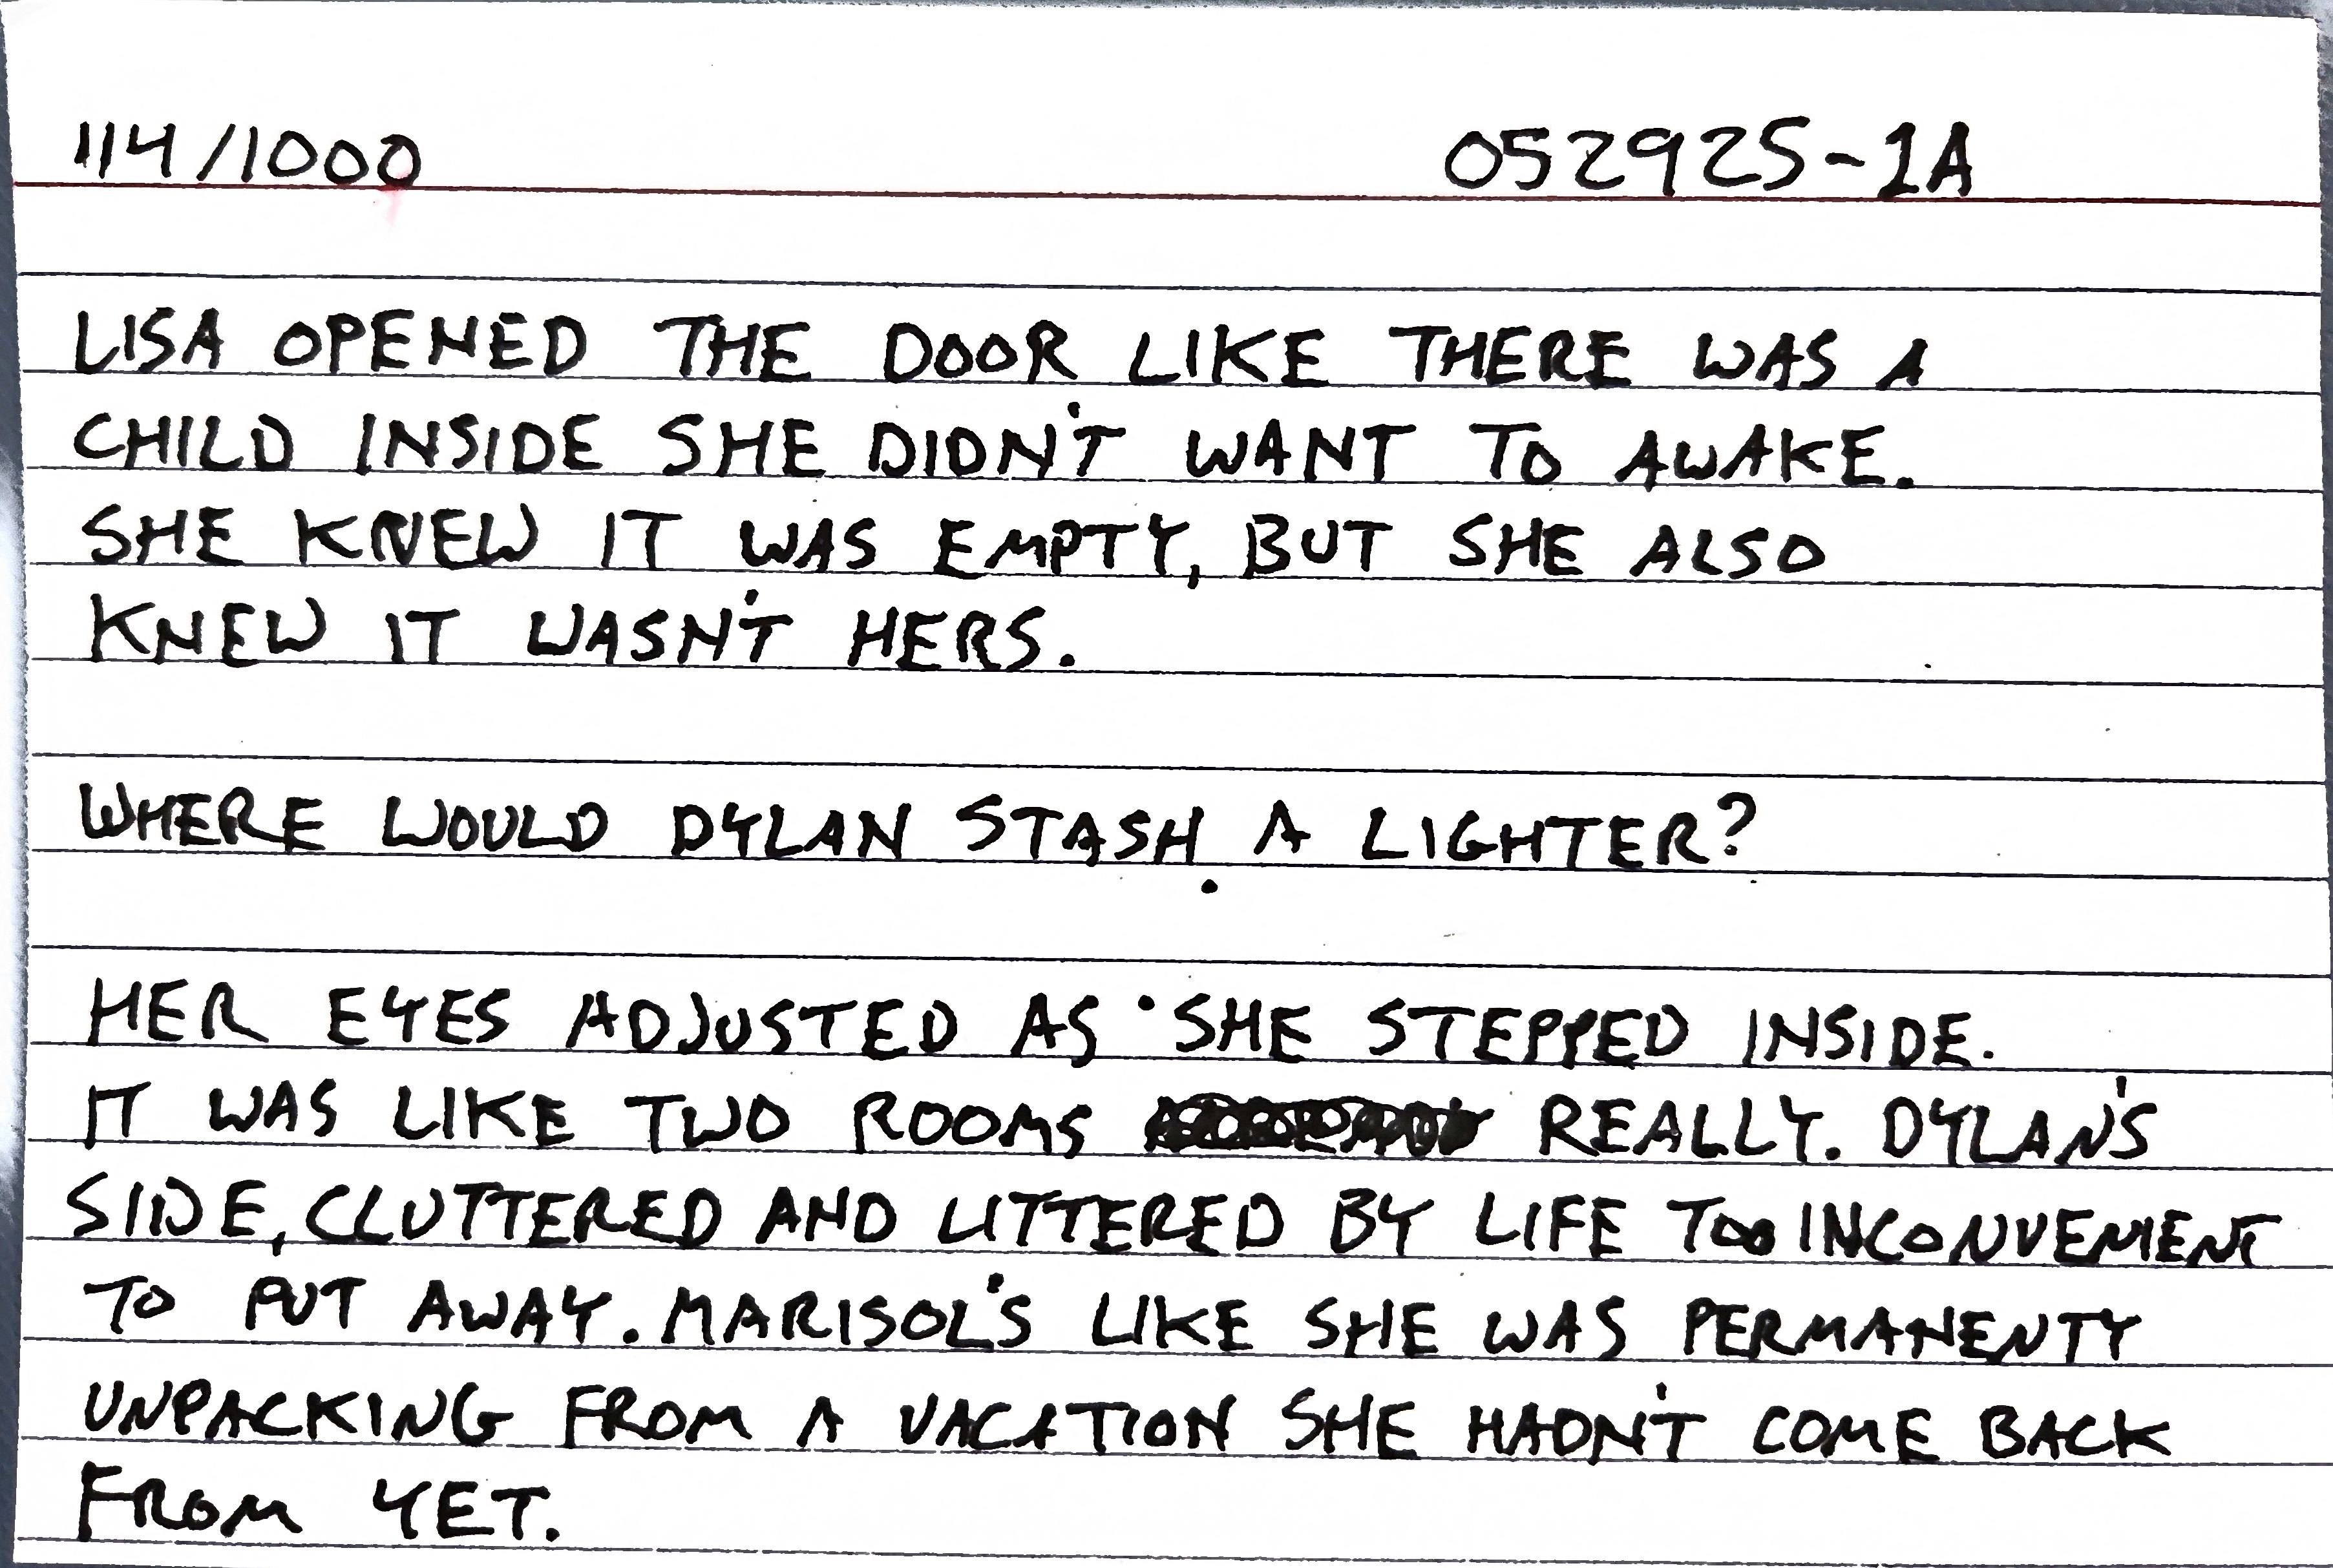 114/1000 052925-1A
LISA OPENED THE DOOR LIKE THERE WAS A
CHILD INSIDE SHE DIDN'T WANT TO AWAKE.
SHE KNEW IT WAS EMPTY, BUT SHE ALSO
KNEW IT WASN'T HERS.
WHERE WOULD DYLAN STASH A LIGHTER?
HER EYES ADJUSTED AS SHE STEPPED INSIDE.
IT WAS LIKE TWO ROOMS REALLY. DYLAN'S
SIDE, CLUTTERED AND LITTERED BY LIFE TOO INCONVENIENT
TO PUT AWAY. MARISOL'S LIKE SHE WAS PERMANENTY
UNPACKING FROM A VACATION SHE HADN'T COME BACK
FROM YET.